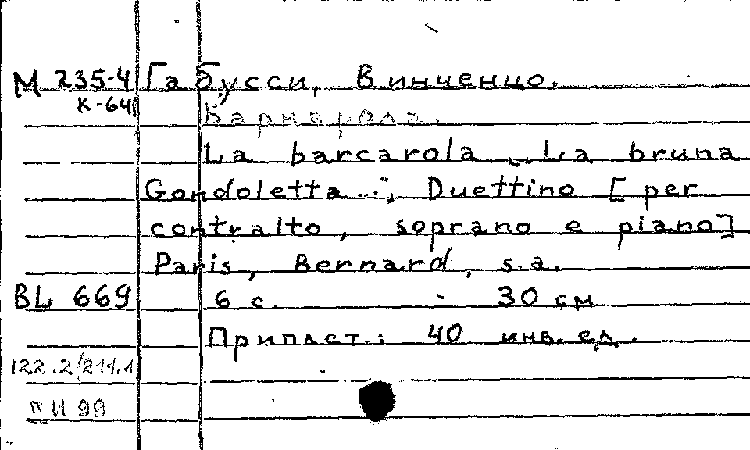 М 235-4 Габусси, Винченцо.
К-64
Баркарола.
La barcarola „La bruna
Gondoletta...", Duettino [per
contralto, soprano e piano]
Paris, Bernard, s.a.
BL 669 6 с. - 30 см
Приплет.: 40 инв. ед.
122.2/211.1
п II 99